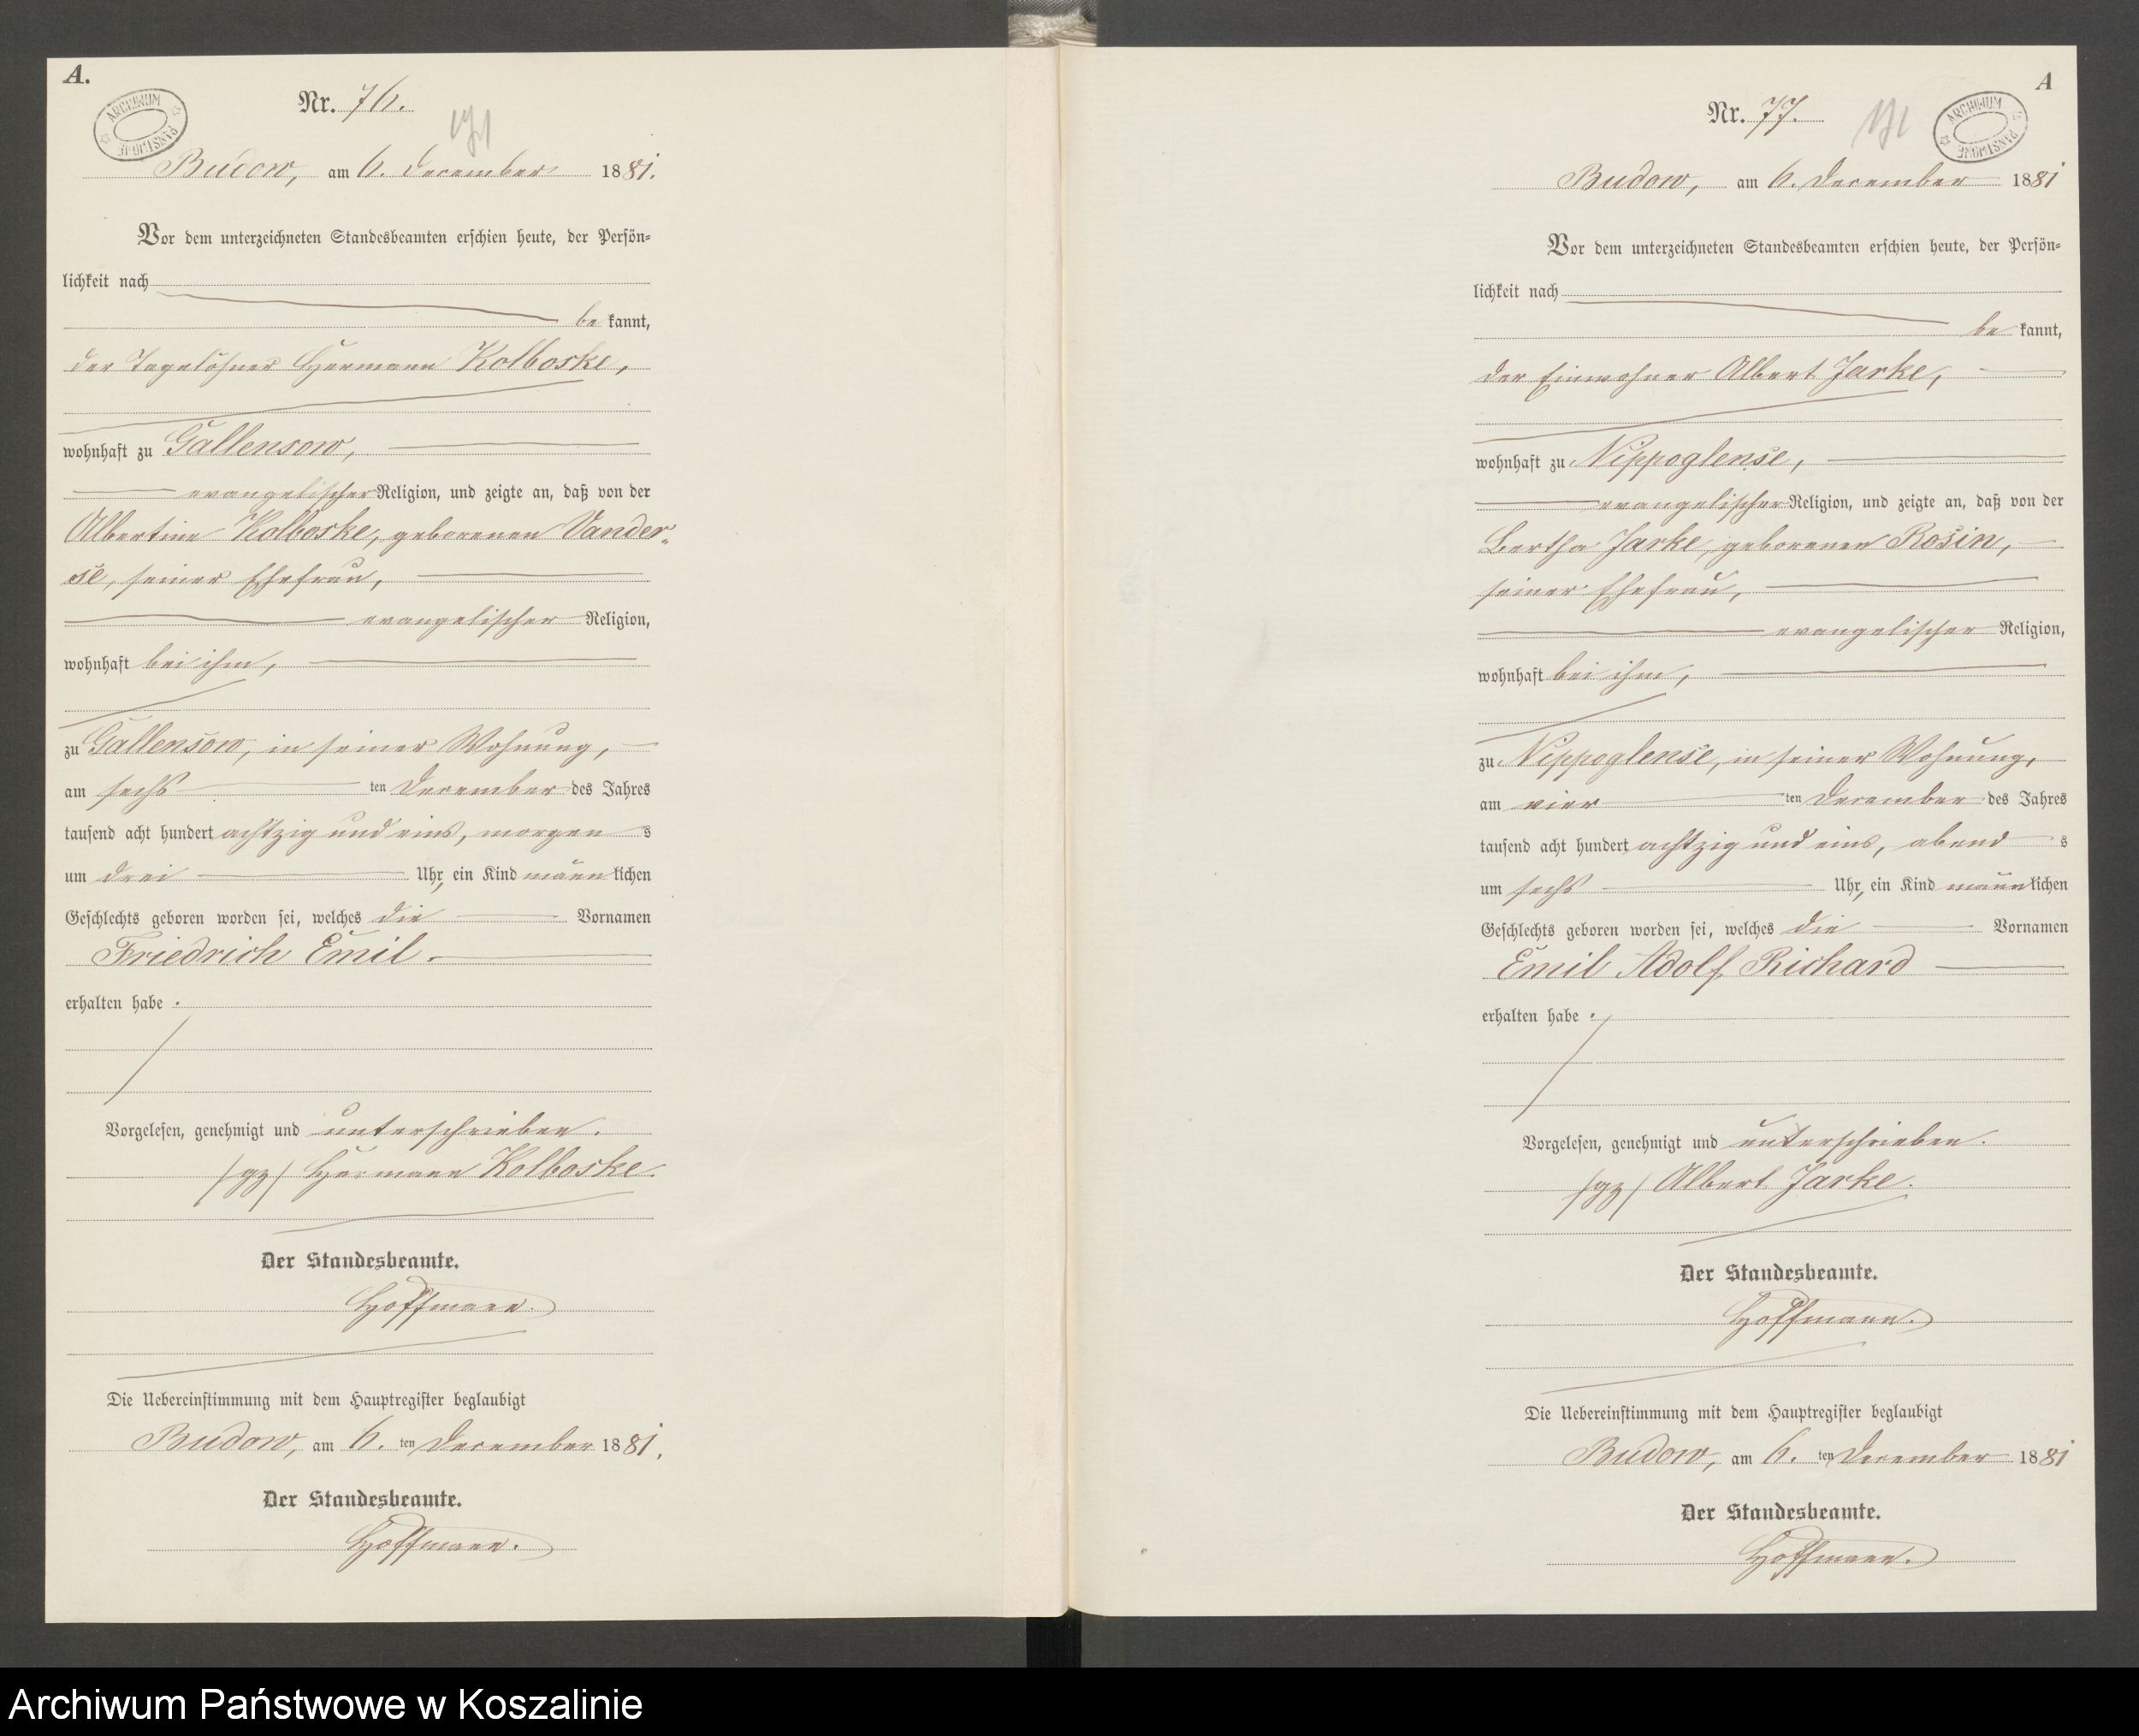 A.
ARCHIWUM PAŃSTWOWE
Nr. 76.
Budow, am 6. December 1881.
Vor dem unterzeichneten Standesbeamten erschien heute, der Persön=
lichkeit nach
be kannt,
der Tagelöhner Hermann Kolboske,
wohnhaft zu Gallensow,
evangelischer Religion, und zeigte an, daß von der
Albertine Kolboske, geborenen Vander=
se, seiner Ehefrau,
evangelischer Religion,
wohnhaft bei ihm,
zu Gallensow, in seiner Wohnung,
am sechs ten December des Jahres
tausend acht hundert achtzig und eins, morgen s
um drei Uhr, ein Kind männ lichen
Geschlechts geboren worden sei, welches die Vornamen
Friedrich Emil.
erhalten habe.
Vorgelesen, genehmigt und unterschrieben.
/gz/ Hermann Kolboske.
Der Standesbeamte.
Hoffmann.
Die Uebereinstimmung mit dem Hauptregister beglaubigt
Budow, am 6. ten December 1881.
Der Standesbeamte.
Hoffmann.
A
ARCHIWUM PAŃSTWOWE
Nr. 77.
Budow, am 6. December 1881
Vor dem unterzeichneten Standesbeamten erschien heute, der Persön=
lichkeit nach
be kannt,
der Einwohner Albert Jarke,
wohnhaft zu Nippoglense,
evangelischer Religion, und zeigte an, daß von der
Bertha Jarke, geborenen Rosin,
seiner Ehefrau,
evangelischer Religion,
wohnhaft bei ihm,
zu Nippoglense, in seiner Wohnung,
am vier ten December des Jahres
tausend acht hundert achtzig und eins, abend s
um sechs Uhr, ein Kind männ lichen
Geschlechts geboren worden sei, welches die Vornamen
Emil Adolf Richard
erhalten habe.
Vorgelesen, genehmigt und unterschrieben.
/gz/ Albert Jarke.
Der Standesbeamte.
Hoffmann.
Die Uebereinstimmung mit dem Hauptregister beglaubigt
Budow, am 6. ten December 1881
Der Standesbeamte.
Hoffmann.
Archiwum Państwowe w Koszalinie